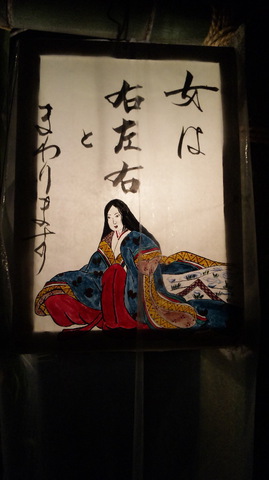 女は
右左右
と
まわります